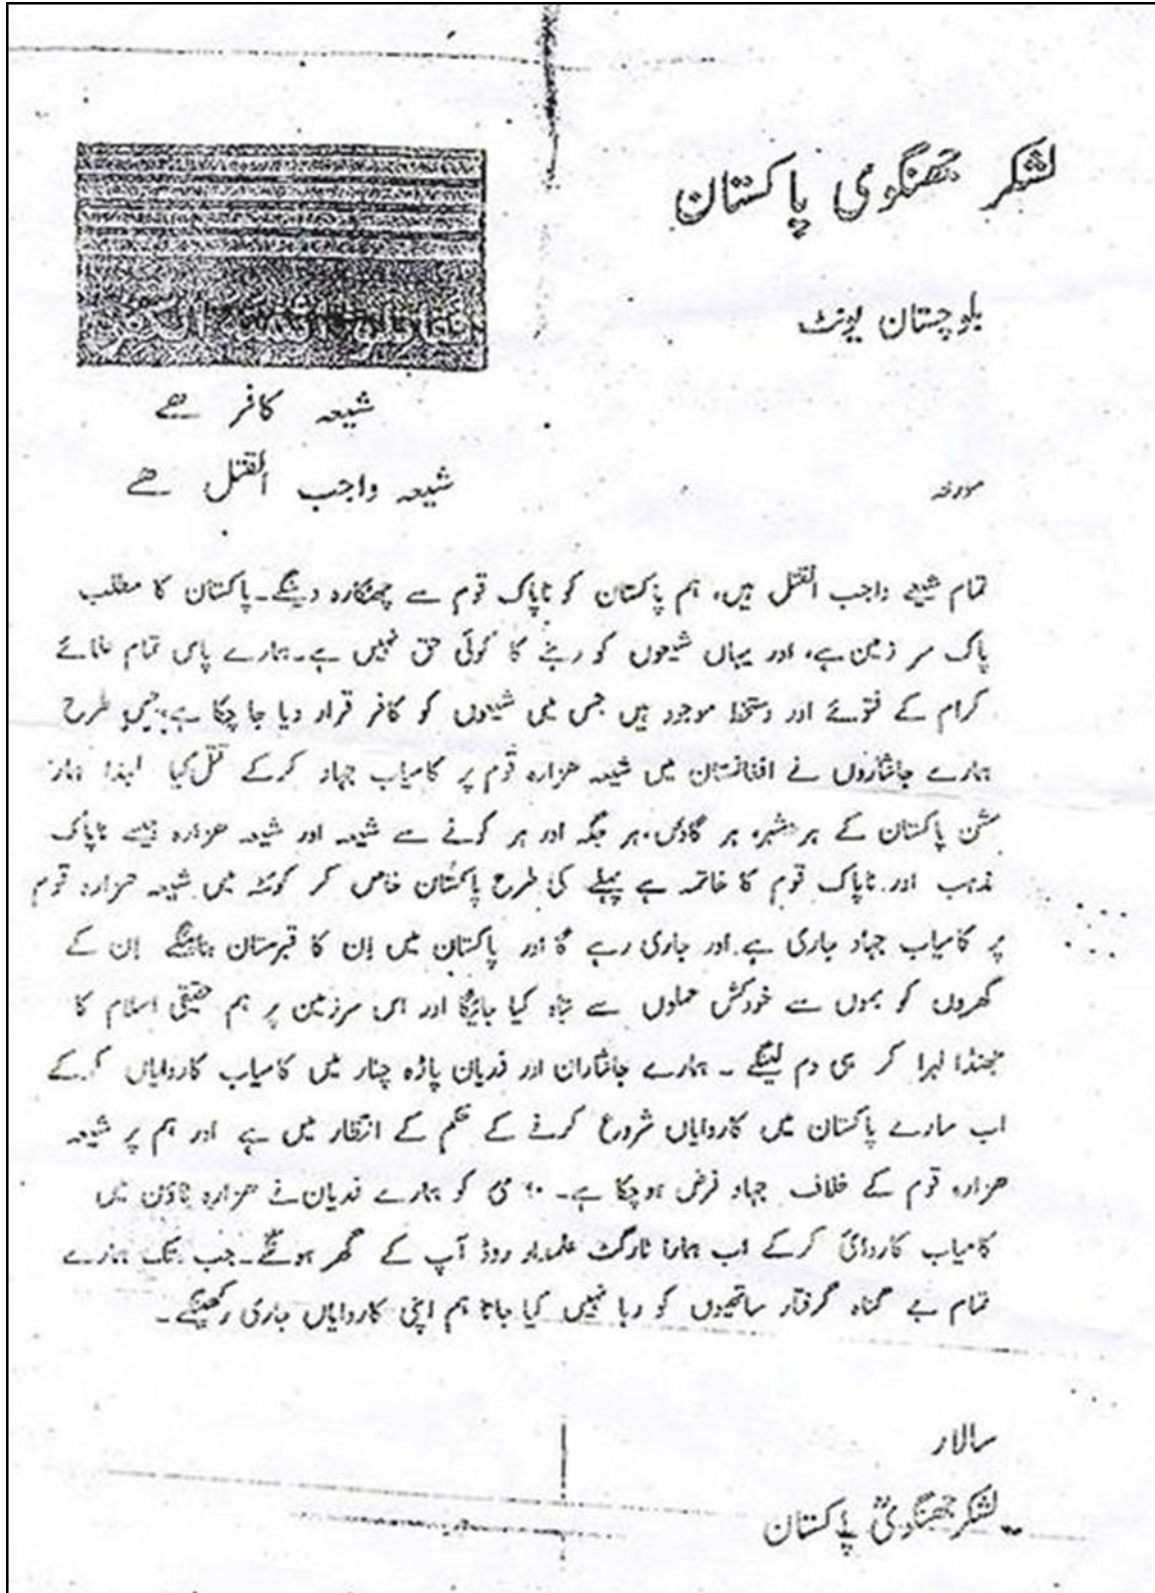 لشکر جھنگوی پاکستان
بلوچستان یونٹ
شیعہ کافر ھے
شیعہ واجب القتل ھے
مورخہ
تمام شیعے واجب القتل ہیں، ہم پاکستان کو ناپاک قوم سے چھٹکارہ دینگے۔ پاکستان کا مطلب
پاک سر زمین ہے، اور یہاں شیعوں کو رہنے کا کوئی حق نہیں ہے۔ ہمارے پاس تمام علمائے
کرام کے فتوے اور دستخط موجود ہیں جس میں شیعوں کو کافر قرار دیا جا چکا ہے، جس طرح
ہمارے جانثاروں نے افغانستان میں شیعہ ھزارہ قوم پر کامیاب جہاد کرکے قتل کیا لہذا ہمارا
مشن پاکستان کے ہر شہر، ہر گاؤں، ہر جگہ اور ہر کونے سے شیعہ اور شیعہ ھزارہ جیسے ناپاک
مذہب اور ناپاک قوم کا خاتمہ ہے پہلے کی طرح پاکستان خاص کر کوئٹہ میں شیعہ ھزارہ قوم
پر کامیاب جہاد جاری ہے اور جاری رہے گا اور پاکستان میں اِن کا قبرستان بنائینگے اِن کے
گھروں کو بموں سے خودکش حملوں سے تباہ کیا جائیگا اور اس سرزمین پر ہم حقیقی اسلام کا
جھنڈا لہرا کر ہی دم لینگے ۔ ہمارے جانثاران اور فدیان پاڑہ چنار میں کامیاب کاروایاں کرکے
اب سارے پاکستان میں کاروایاں شروع کرنے کے حکم کے انتظار میں ہے اور ہم پر شیعہ
ھزارہ قوم کے خلاف جہاد فرض ہوچکا ہے۔ مئ کو ہمارے فدیان نے ھزارہ ٹاؤن میں
کامیاب کاروائ کرکے اب ہمارا ٹارگٹ علمدار روڈ آپ کے گھر ہونگے۔ جب تک ہمارے
تمام بے گناہ گرفتار ساتھیوں کو رہا نہیں کیا جاتا ہم اپنی کاروایاں جاری رکھینگے۔
سالار
لشکر جھنگوی پاکستان